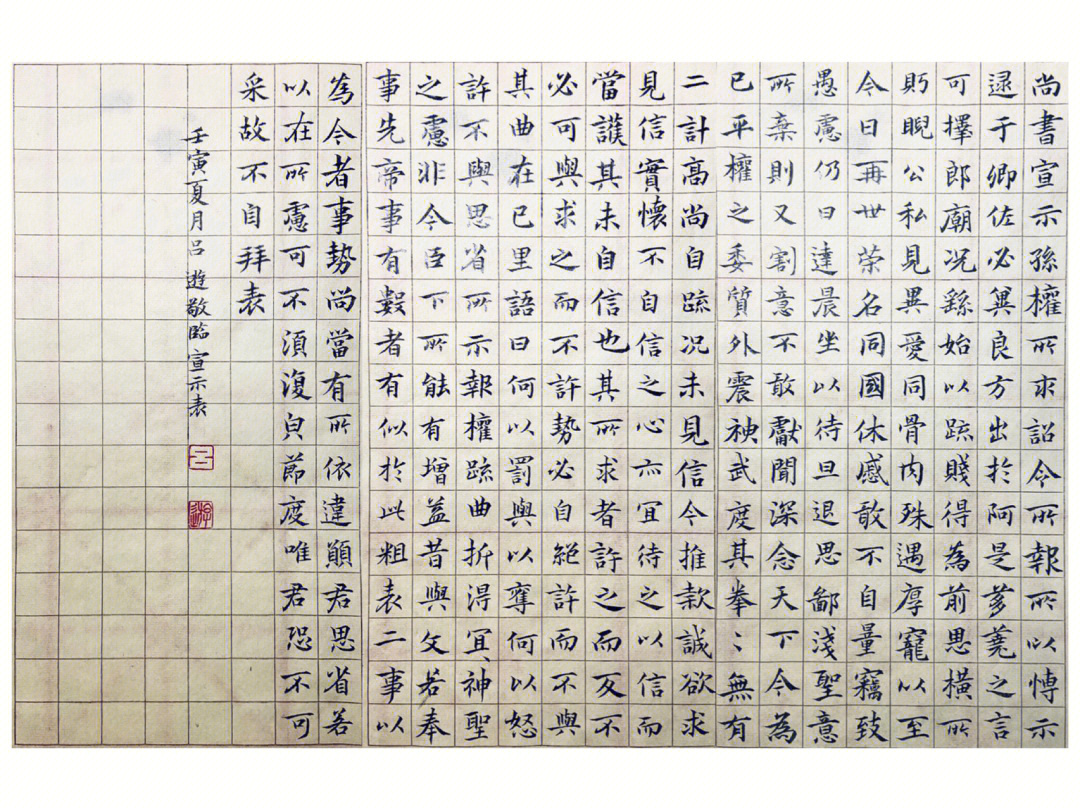 尚書宣示孫權所求詔令所報所以博示
逯于卿佐必兾良方出於阿是芻蕘之言
可擇郎廟况繇始以踈賤得為前恩橫所
眄睨公私見異愛同骨肉殊遇厚寵以至
今日再世榮名同國休慼敢不自量竊致
愚慮仍日達晨坐以待旦退思鄙淺聖意
所棄則又割意不敢獻聞深念天下今為
已平權之委質外震神武度其拳〻無有
二計高尚自踈况未見信今推款誠欲求
見信實懷不自信之心亦宜待之以信而
當護其未自信也其所求者許之而反不
必可與求之而不許勢必自絕許而不與
其曲在已里語曰何以罰與以奪何以怒
許不與思省所示報權踈曲折得宜神聖
之慮非今臣下所能有增益昔與文若奉
事先帝事有數者有似於此粗表二事以
為今者事勢尚當有所依違願君思省若
以在所慮可不須復皃節度唯君恐不可
采故不自拜表
壬寅夏月吕遊敬臨宣示表